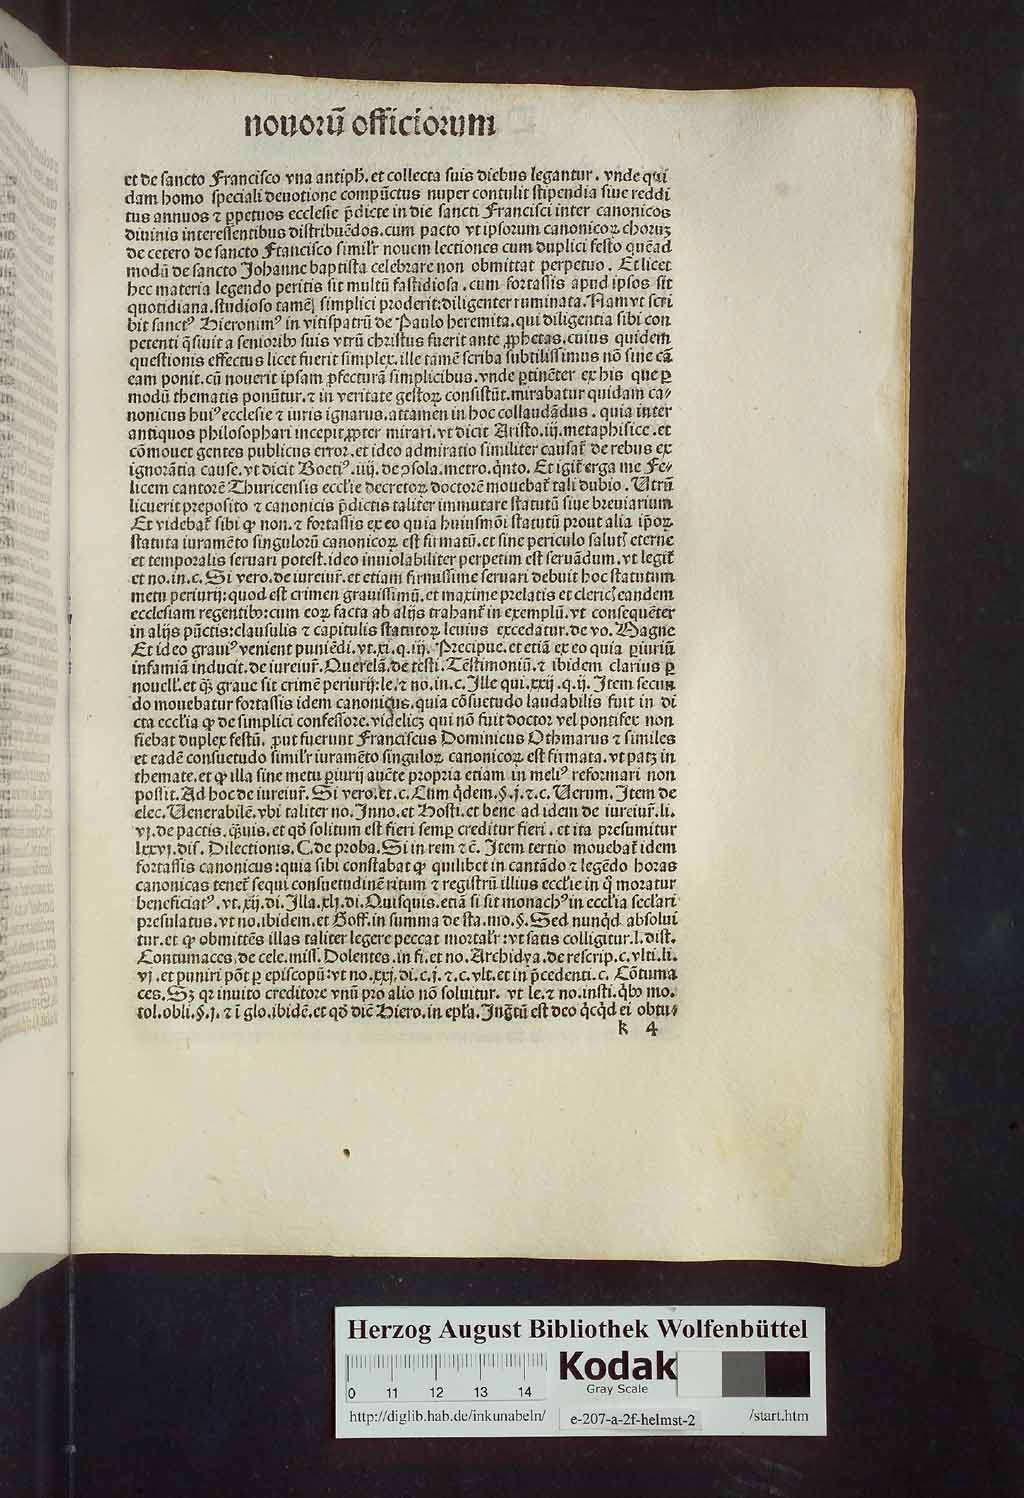 nouoꝝ officiorum
et de sancto Francisco vna antiph̄. et collecta suis diebus legantur. vnde qui
dam homo specialī deuotione compūctus nuper contulit stipendia siue reddi
tus annuos ⁊ ꝑpetuos ecclesie p̄dicte in die sancti Francisci inter canonicos
diuinis interessentibus distribuēdos. cum pacto vt ipsorum canonicoꝝ chorus
de cetero de sancto Francisco simili'r nouem lectiones cum duplici festo quēad
modū de sancto Johanne baptista celebrare non obmittat perpetuo. Et licet
hec materia legendo peritis sit multū fastidiosa. cum fortassis apud ipsos sit
quotidiana. studioso tamē simplici proderit: diligenter ruminata. Nam vt scri
bit sanctꝰ Hieronimꝰ in vitispatrū de Paulo heremita. qui diligentia sibi con
petenti q̄siuit a seniorib' suis vtrū christus fuerit ante ꝓphetas. cuius quidem
questionis effectus licet fuerit simplex. ille tamē scriba subtilissimus nō sine cā
eam ponit. cū nouerit ipsam ꝓfecturā simplicibus. vnde ꝑtinēter ex his que ꝑ
modū thematis ponūtur. ⁊ in veritate gestoꝝ consistūt. mirabatur quidam ca⸗
nonicus huiꝰ ecclesie ⁊ iuris ignarus. attamen in hoc collaudādus. quia inter
antiquos philosophari incepit ꝓpter mirari. vt dicit Aristo. iij. metaphisice. et
cōmouet gentes publicus error. et ideo admiratio similiter causat̄ de rebus ex
ignorātia cause. vt dicit Boetiꝰ. iiij. de ↄsola. metro. q̄nto. Et igit̄ erga me Fe⸗
licem cantorē Thuricensis eccl'ie decretoꝝ doctorē mouebat̄ tali dubio. Utrū
licuerit preposito ⁊ canonicis p̄dictis taliter immutare statutū siue breuiarium
Et videbat̄ sibi ꝙ non. ⁊ fortassis ex eo quia huiusmōi statutū prout alia ip̄oꝝ
statuta iuramēto singulorū canonicoꝝ est firmatū. et sine periculo salutꝭ eterne
et temporalis seruari potest. ideo inuiolabiliter perpetim est seruādum. vt legit̄
et no. in. c. Si vero. de iureiur̄. et etiam firmissime seruari debuit hoc statutum
metu periurij: quod est crimen grauissimū. et maxime prelatis et clericꝭ eandem
ecclesiam regentib': cum eoꝝ facta ab alijs trahant̄ in exemplū. vt consequēter
in alijs pūctis: clausulis ⁊ capitulis statutoꝝ leuius excedatur. de vo. Magne
Et ideo grauiꝰ venient puniēdi. vt. xi. q. iij. Precipue. et etiā ex eo quia ꝑiuriū
infamiā inducit. de iureiur̄. Querelā. de testi. Testimoniū. ⁊ ibidem clarius ꝑ
nouell'. et q̄ꝫ graue sit crimē periurij: le. ⁊ no. in. c. Ille qui. xxij. q. ij. Item secun
do mouebatur fortassis idem canonicus. quia cōsuetudo laudabilis fuit in di
cta eccl'ia ꝙ de simplici confessore. videlicꝫ qui nō fuit doctor vel pontifex non
fiebat duplex festū. ꝓut fuerunt Franciscus Dominicus Othmarus ⁊ similes
et eadē consuetudo simili'r iuramēto singuloꝝ canonicoꝝ est firmata. vt patꝫ in
themate. et ꝙ illa sine metu ꝑiurij auēte propria etiam in meliꝰ reformari non
possit. Ad hoc de iureiur̄. Si vero. et. c. Cum q̄dem. §. j. ⁊. c. Uerum. Item de
elec. Uenerabilē. vbi taliter no. Inno. et Hosti. et bene ad idem de iureiur̄. li.
vj. de pactis. q̄ꝫuis. et qđ solitum est fieri semꝑ creditur fieri. et ita presumitur
lxxvj. dis. Dilectionis. C. de proba. Si in rem ⁊ c̄. Item tertio mouebat̄ idem
fortassis canonicus: quia sibi constabat ꝙ quilibet in cantādo ⁊ legēdo horas
canonicas tenet̄ sequi consuetudinē ritum ⁊ registrū illius eccl'ie in q̄ moratur
beneficiatꝰ. vt. xij. di. Illa. xlj. di. Quisquis. etiā si sit monachꝰ in eccl'ia secl'ari
presulatus. vt no. ibidem. et Goff. in summa de sta. mo. §. Sed nunqđ absolui
tur. et ꝙ obmittēs illas taliter legere peccat mortal'r: vt satis colligitur. l. dist.
Contumaces. de cele. miss. Dolentes. in fi. et no. Archidya. de rescrip. c. vlti. li.
vj. et puniri pōt ꝑ episcopū: vt no. xxj. di. c. j. ⁊. c. vlt. et in p̄cedenti. c. Cōtuma
ces. Sꝫ qr inuito creditore vnū pro alio nō soluitur. vt le. ⁊ no. insti. q̄b' mo.
tol. obli. §. j. ⁊ ī glo. ibidē. et qđ diē Hiero. in epl'a. Ingtū est deo q̄cq̄d ei obtu⸗
k 4
Herzog August Bibliothek Wolfenbüttel
Kodak
Gray Scale
0 11 12 13 14
http://diglib.hab.de/inkunabeln/ e-207-a-2f-helmst-2 /start.htm